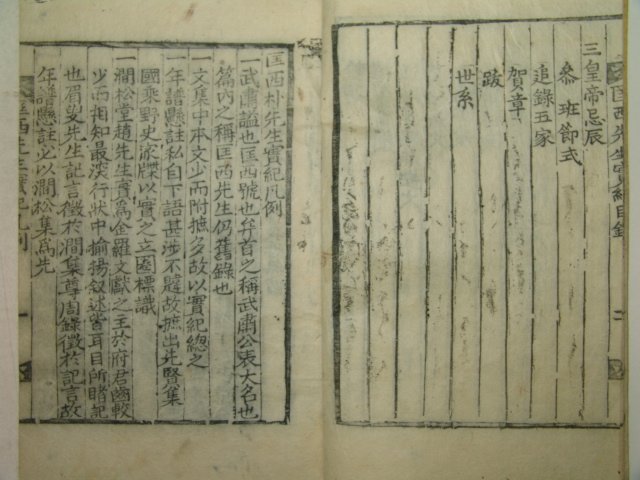 三皇帝忌辰
叅班節式
追錄五家
賀章
跋
世系
匡西先生實紀目錄
二
匡西朴先生實紀凡例
一武肅謚也匡西號也弁首之稱武肅公表大名也
篇內之稱匡西先生仍舊錄也
一文集中本文少而附摭多故以實紀總之
年譜懸註私自下語甚涉不韙故摭出先賢集
國乘野史家牒以實之立圈標識
一澗松堂趙先生實爲金羅文獻之主於府君齒較
少而相知最深行狀中揄揚叙述皆耳目所睹記
也眉叟先生記言徵於澗集尊周錄徵於記言故
年譜懸註必以澗松集爲先
匡西先生實紀凡例
一